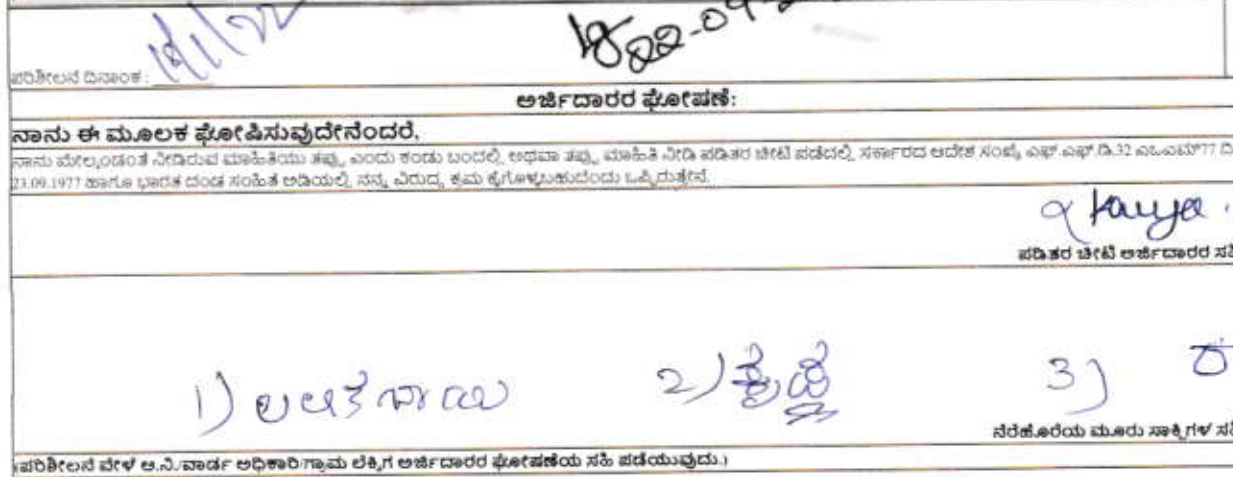 18/1/22
22-09-2
ಪರಿಶೀಲನೆ ದಿನಾಂಕ :
ಅರ್ಜಿದಾರರ ಘೋಷಣೆ:
ನಾನು ಈ ಮೂಲಕ ಘೋಷಿಸುವುದೇನೆಂದರೆ.
ನಾನು ಮೇಲ್ಕಂಡಂತೆ ನೀಡಿರುವ ಮಾಹಿತಿಯು ತಪ್ಪು ಎಂದು ಕಂಡು ಬಂದಲ್ಲಿ ಅಥವಾ ತಪ್ಪು ಮಾಹಿತಿ ನೀಡಿ ಪಡಿತರ ಚೀಟಿ ಪಡೆದಲ್ಲಿ ಸರ್ಕಾರದ ಆದೇಶ ಸಂಖ್ಯೆ ಎಫ್.ಎಫ್.ಡಿ.32 ಎಒಎಮ್77 ದಿ
23.09.1977 ಹಾಗೂ ಭಾರತ ದಂಡ ಸಂಹಿತೆ ಅಡಿಯಲ್ಲಿ ನನ್ನ ವಿರುದ್ಧ ಕ್ರಮ ಕೈಗೊಳ್ಳಬಹುದೆಂದು ಒಪ್ಪಿರುತ್ತೇನೆ.
ಪಡಿತರ ಚೀಟಿ ಅರ್ಜಿದಾರರ ಸಹಿ
1) ಲಲಿತಬಾಯಿ 2) 3)
ನೆರೆಹೊರೆಯ ಮೂರು ಸಾಕ್ಷಿಗಳ ಸಹಿ
(ಪರಿಶೀಲನೆ ವೇಳೆ ಆ.ನಿ/ವಾರ್ಡ ಅಧಿಕಾರಿ/ಗ್ರಾಮ ಲೆಕ್ಕಿಗ ಅರ್ಜಿದಾರರ ಘೋಷಣೆಯ ಸಹಿ ಪಡೆಯುವುದು.)